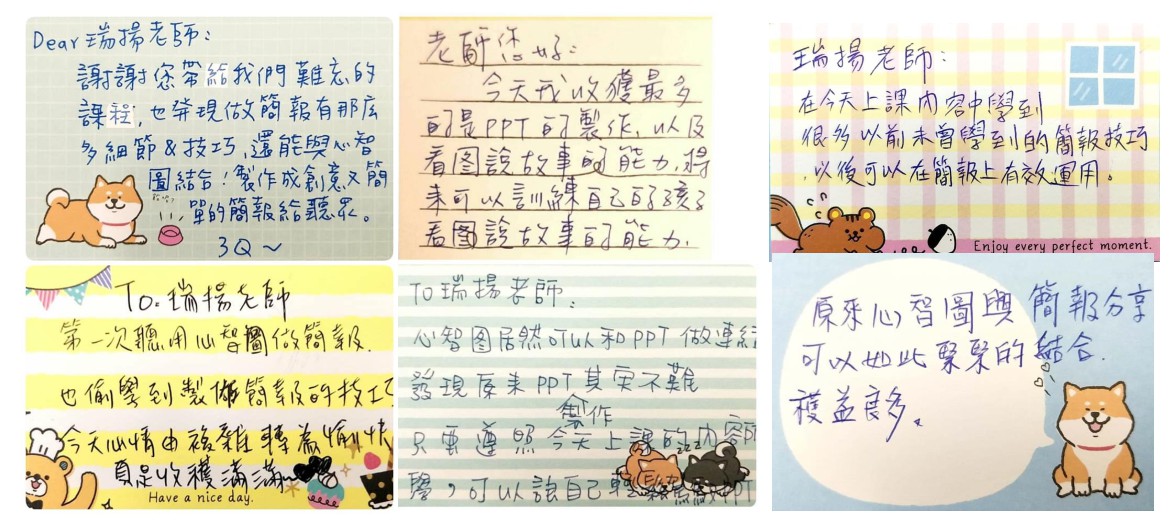 Dear 瑞揚老師：
謝謝您帶給我們難忘的
課程，也發現做簡報有那麼
多細節&技巧，還能與心智
圖結合！製作成創意又簡
單的簡報給聽眾。
3Q～
老師您好：
今天我收獲最多
的是PPT的製作，以及
看图說故事的能力，將
來可以訓練自己的孩子
看圖說故事的能力。
瑞揚老師：
在今天上課內容中學到
很多以前未曾學到的簡報技巧
，以後可以在簡報上有效運用。
Enjoy every perfect moment.
To：瑞揚老師
第一次聽用心智圖做簡報，
也偷學到製做簡報的技巧
今天心情由複雜轉為愉快
真是收穫滿滿～
Have a nice day.
TO瑞揚老師：
心智图居然可以和PPT做連結
發現原來PPT其实不難
製作
只要遵照今天上課的內容所
學，可以讓自己PPT
原來心智圖與簡報分享
可以如此緊緊的結合．
穫益良多。